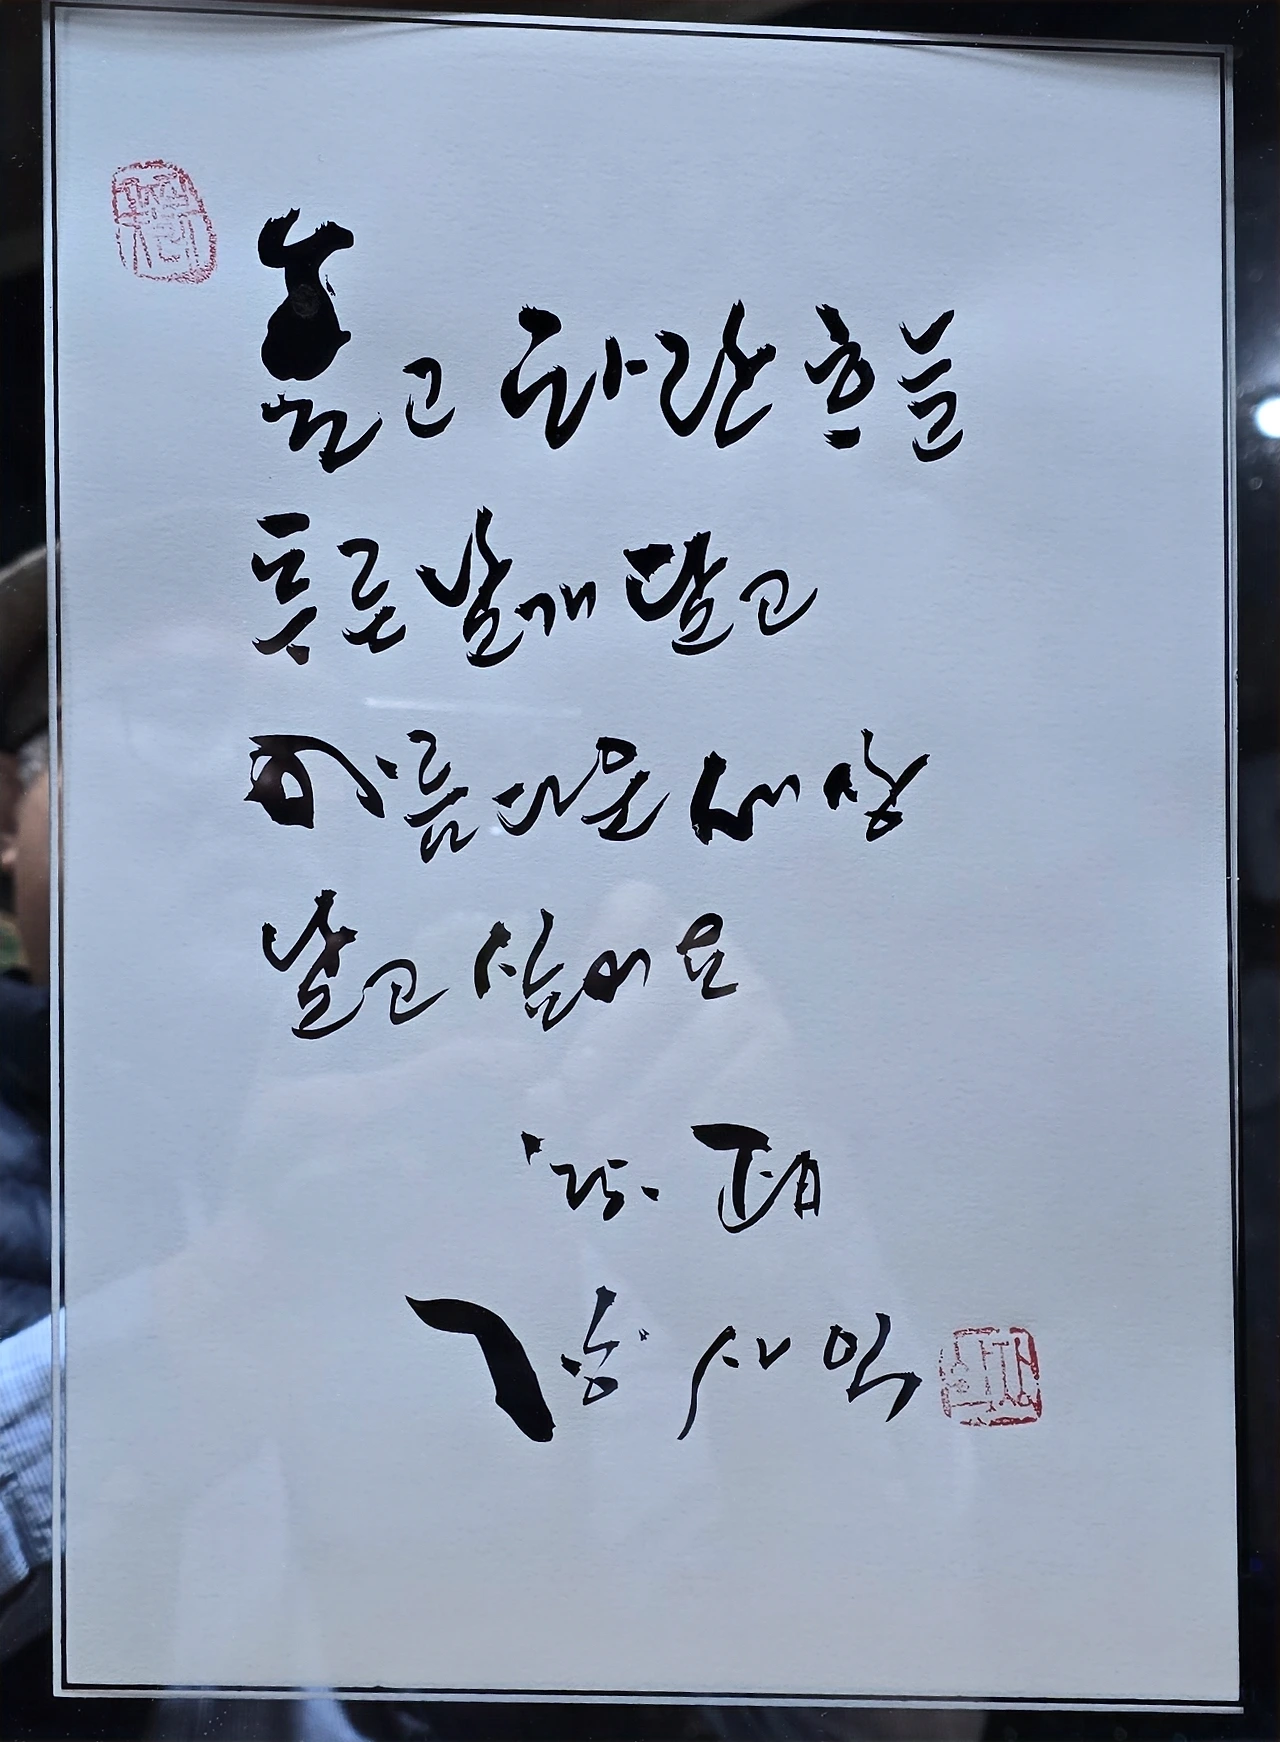 높고 파란 ᄒᆞ늘
푸른 날개 달고
아름다운 세상
날고 싶어요
'25. 正月
장사익